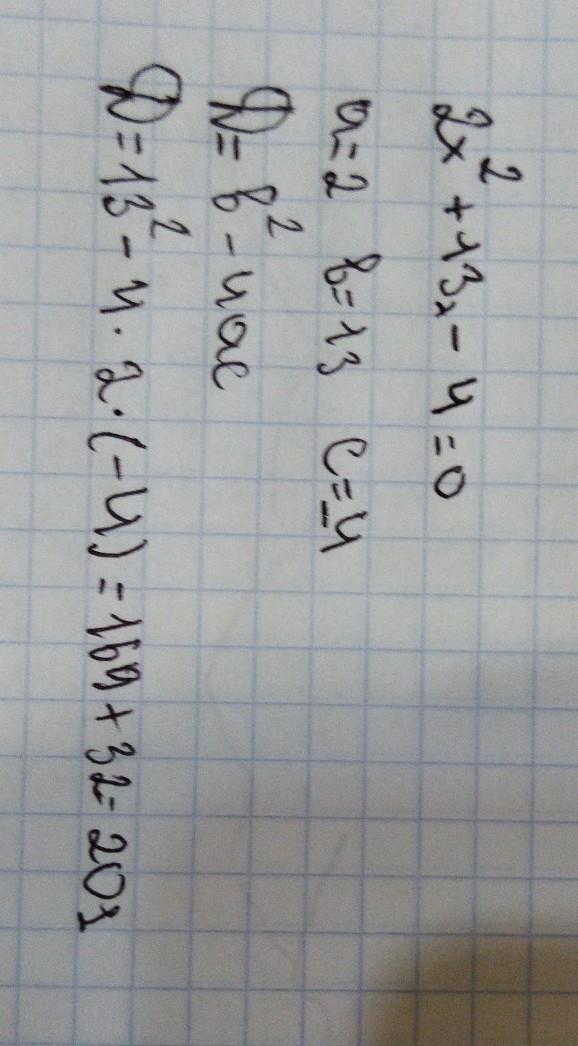 2x² + 13x - 4 = 0
a=2 b=13 c=-4
D= b² - 4ac
D=13² - 4 · 2 · (-4) = 169 + 32 = 201